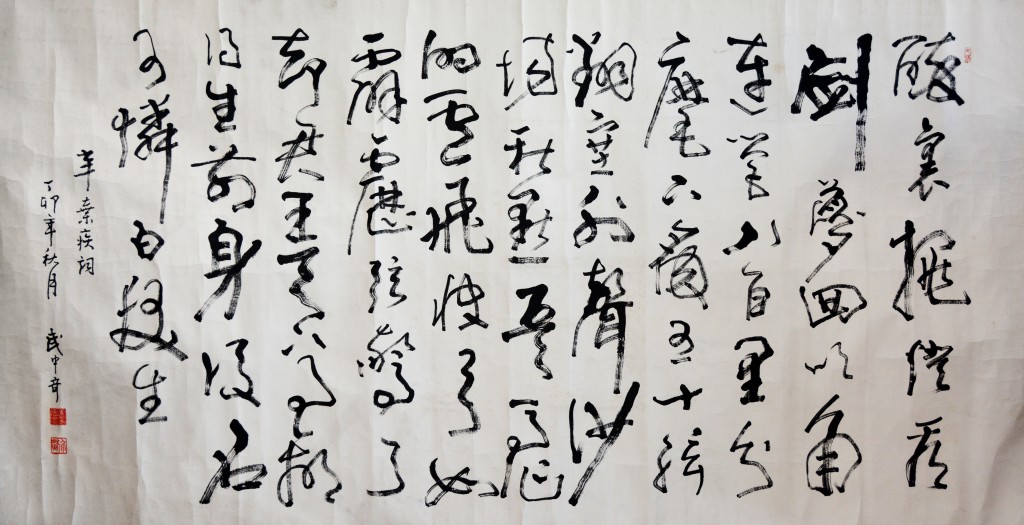 醉裏挑燈看
劍夢回吹角
連營八百里分
麾下炙五十弦
翻塞外聲沙
場秋點兵馬作
的盧飛快弓如
霹靂弦驚了
却君王天下事贏
得生前身後名
可憐白髮生
辛棄疾詞
丁卯年秋月 武中奇